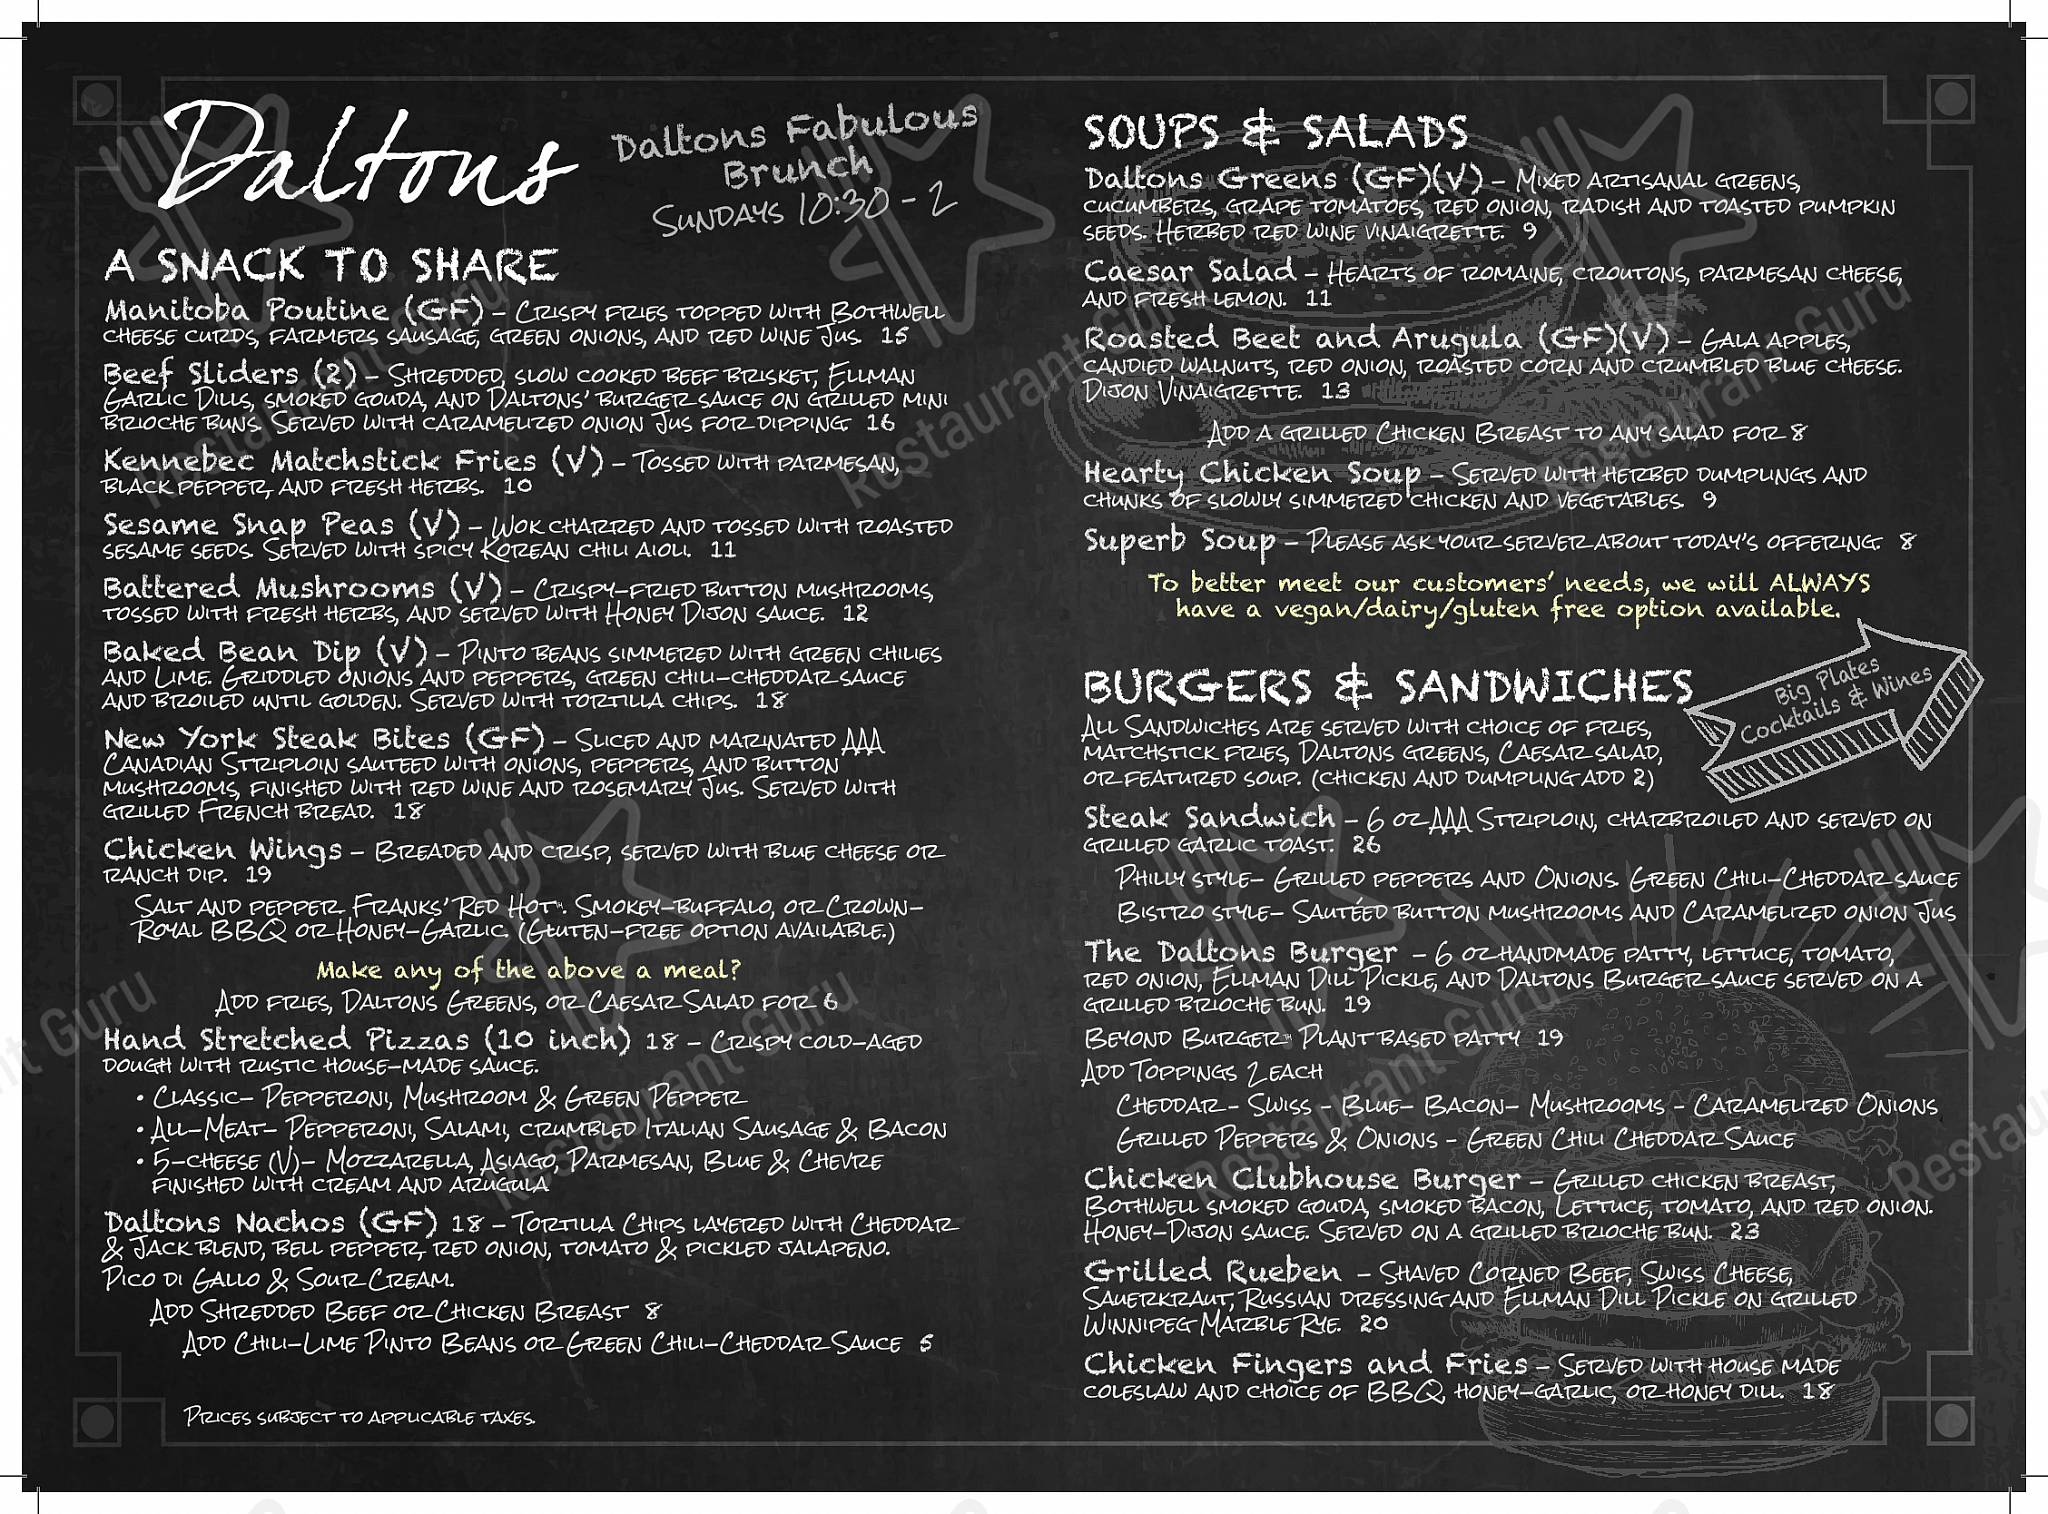 Daltons
Daltons Fabulous
Brunch
Sundays 10:30 - 2
A SNACK TO SHARE
Manitoba Poutine (GF) – Crispy fries topped with Bothwell
cheese curds, farmers sausage, green onions, and red wine Jus. 15
Beef Sliders (2) – Shredded, slow cooked beef brisket, Ellman
Garlic Dills, smoked gouda, and Daltons' burger sauce on grilled mini
brioche buns. Served with caramelized onion Jus for dipping. 16
Kennebec Matchstick Fries (V) – Tossed with parmesan,
black pepper, and fresh herbs. 10
Sesame Snap Peas (V) – Wok charred and tossed with roasted
sesame seeds. Served with spicy Korean chili aioli. 11
Battered Mushrooms (V) – Crispy-fried button mushrooms,
tossed with fresh herbs, and served with Honey Dijon sauce. 12
Baked Bean Dip (V) – Pinto beans simmered with green chilies
and Lime. Griddled onions and peppers, green chili-cheddar sauce
and broiled until golden. Served with tortilla chips. 18
New York Steak Bites (GF) – Sliced and marinated AAA
Canadian Striploin sauteed with onions, peppers, and button
mushrooms, finished with red wine and rosemary Jus. Served with
grilled French bread. 18
Chicken Wings – Breaded and crisp, served with blue cheese or
ranch dip. 19
Salt and pepper, Franks' Red Hot™. Smokey-buffalo, or Crown-
Royal BBQ or Honey-Garlic. (Gluten-free option available.)
Make any of the above a meal?
Add fries, Daltons Greens, or Caesar Salad for 6
Hand Stretched Pizzas (10 inch) 18 – Crispy cold-aged
dough with rustic house-made sauce.
• Classic– Pepperoni, Mushroom & Green Pepper
• All-Meat– Pepperoni, Salami, crumbled Italian Sausage & Bacon
• 5-cheese (V)– Mozzarella, Asiago, Parmesan, Blue & Chevre
finished with cream and arugula
Daltons Nachos (GF) 18 – Tortilla Chips layered with Cheddar
& Jack blend, bell pepper, red onion, tomato & pickled jalapeno.
Pico di Gallo & Sour Cream.
Add Shredded Beef or Chicken Breast 8
Add Chili-Lime Pinto Beans or Green Chili-Cheddar Sauce 5
Prices subject to applicable taxes.
SOUPS & SALADS
Daltons Greens (GF)(V) – Mixed artisanal greens,
cucumbers, grape tomatoes, red onion, radish and toasted pumpkin
seeds. Herbed red wine vinaigrette. 9
Caesar Salad – Hearts of romaine, croutons, parmesan cheese,
and fresh lemon. 11
Roasted Beet and Arugula (GF)(V) – Gala apples,
candied walnuts, red onion, roasted corn and crumbled blue cheese.
Dijon Vinaigrette. 13
Add a grilled Chicken Breast to any salad for 8
Hearty Chicken Soup – Served with herbed dumplings and
chunks of slowly simmered chicken and vegetables. 9
Superb Soup – Please ask your server about today's offering. 8
To better meet our customers' needs, we will ALWAYS
have a vegan/dairy/gluten free option available.
BURGERS & SANDWICHES
Big Plates
Cocktails & Wines
All Sandwiches are served with choice of fries,
matchstick fries, Daltons greens, Caesar salad,
or featured soup. (chicken and dumpling add 2)
Steak Sandwich – 6 oz AAA Striploin, charbroiled and served on
grilled garlic toast. 26
Philly style– Grilled peppers and Onions. Green Chili-Cheddar sauce
Bistro style– Sautéed button mushrooms and Caramelized onion Jus
The Daltons Burger – 6 oz handmade patty, lettuce, tomato,
red onion, Ellman Dill Pickle, and Daltons Burger sauce served on a
grilled brioche bun. 19
Beyond Burger™ Plant based patty 19
Add Toppings 2 each
Cheddar – Swiss – Blue– Bacon– Mushrooms – Caramelized Onions
Grilled Peppers & Onions – Green Chili Cheddar Sauce
Chicken Clubhouse Burger – Grilled chicken breast,
Bothwell smoked gouda, smoked bacon, Lettuce, tomato, and red onion.
Honey-Dijon sauce. Served on a grilled brioche bun. 23
Grilled Rueben – Shaved Corned Beef, Swiss Cheese,
Sauerkraut, Russian dressing and Ellman Dill Pickle on grilled
Winnipeg Marble Rye. 20
Chicken Fingers and Fries – Served with house made
coleslaw and choice of BBQ, honey-garlic, or honey dill. 18
Restaurant Guru
Restaurant Guru
Restaurant Guru
Restaurant Guru
Restaurant Guru